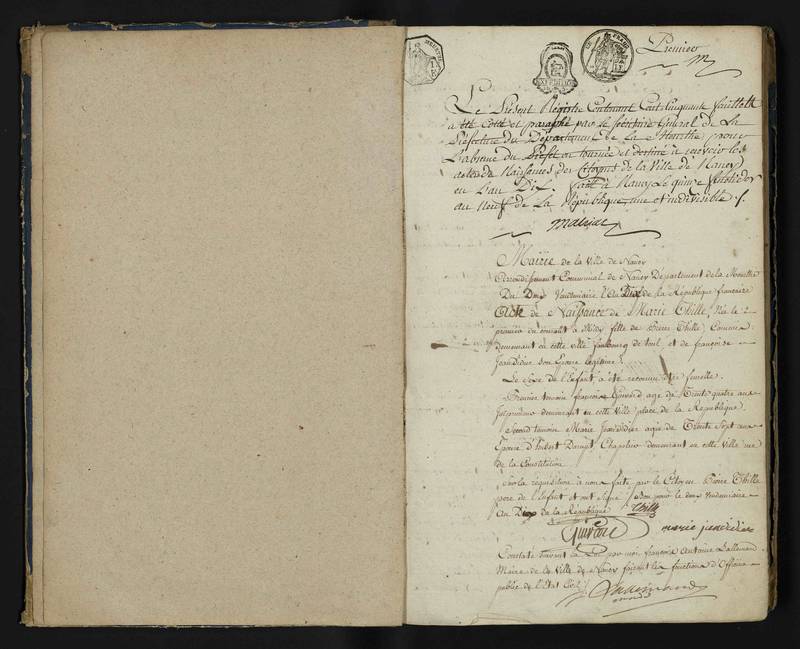 Premier
Le Présent Registre Contenant Cent Cinquante feuillets
a été Cotté et paraphé par le secrétaire Général de La
Préfecture du Département de la Meurthe, pour
L'absence du Préfet en tournée et destiné à recevoir les
actes de Naissances des Citoyens de la Ville de Nancy
en L'an Dix. fait à Nancy Le quinze fructidor
an Neuf de La République, une et indivisible /.
Mairie de la Ville de Nancy
Arrondissement Communal de Nancy Departement de la Meurthe
Du Deux Vendemiaire L'an Dix de la République française
Acte de Naissance de Marie Thille, Née le
premier du courant à Midy fille de Pierre Thille, Commis
demeurant en cette ville faubourg de toul, et de françoise
Jeandidier son Epouse legitime.
Le Sexe de l'Enfant a été reconnu être femelle.
Premier temoin françois age de Trente quatre ans
demeurant en cette Ville place de la République
Second temoin Marie Jeandidier agée de Trente Sept ans
Epouse d'Hubert Chapelier demeurant en cette Ville rue
de la Constitution
Sur la requisition à nous faite par le Citoyen Pierre Thille
pere de l'Enfant et ont signé / Bon pour le deux Vendemiaire
An Dix de la République Thille
marie jandidier
Constaté suivant la Loi par moi françois Antoine Lallemand
Maire de la Ville de Nancy faisant les fonctions d'Officier
public de l'Etat Civil /
Lallemand